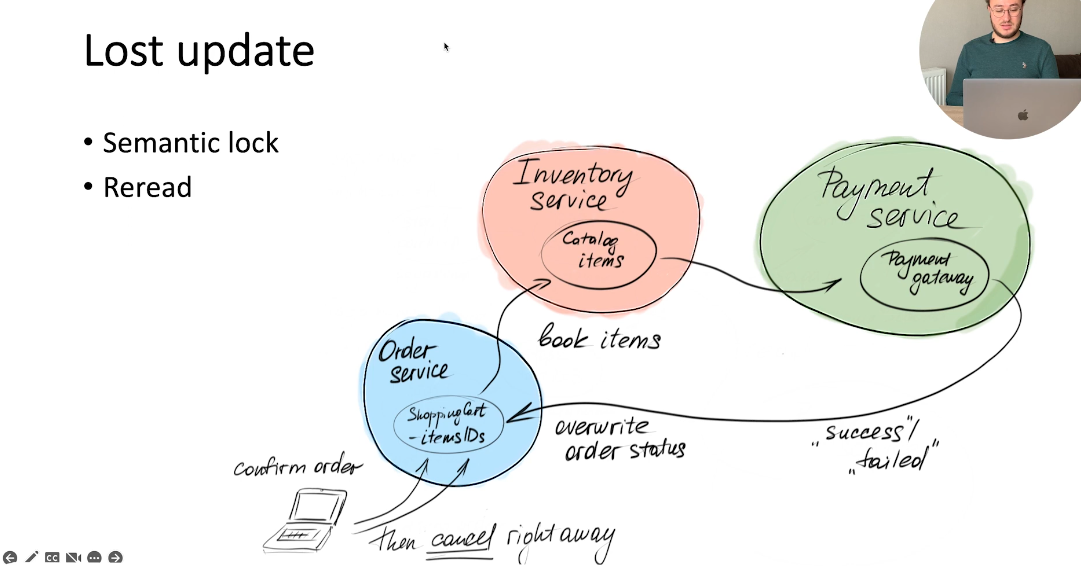 Lost update
• Semantic lock
• Reread
Inventory
service
Catalog
items
Payment
service
Payment
gateway
book items
Order
service
ShoppingCart
- itemsIDs
overwrite
order status
"success"/
"failed"
confirm order
then cancel right away
CC